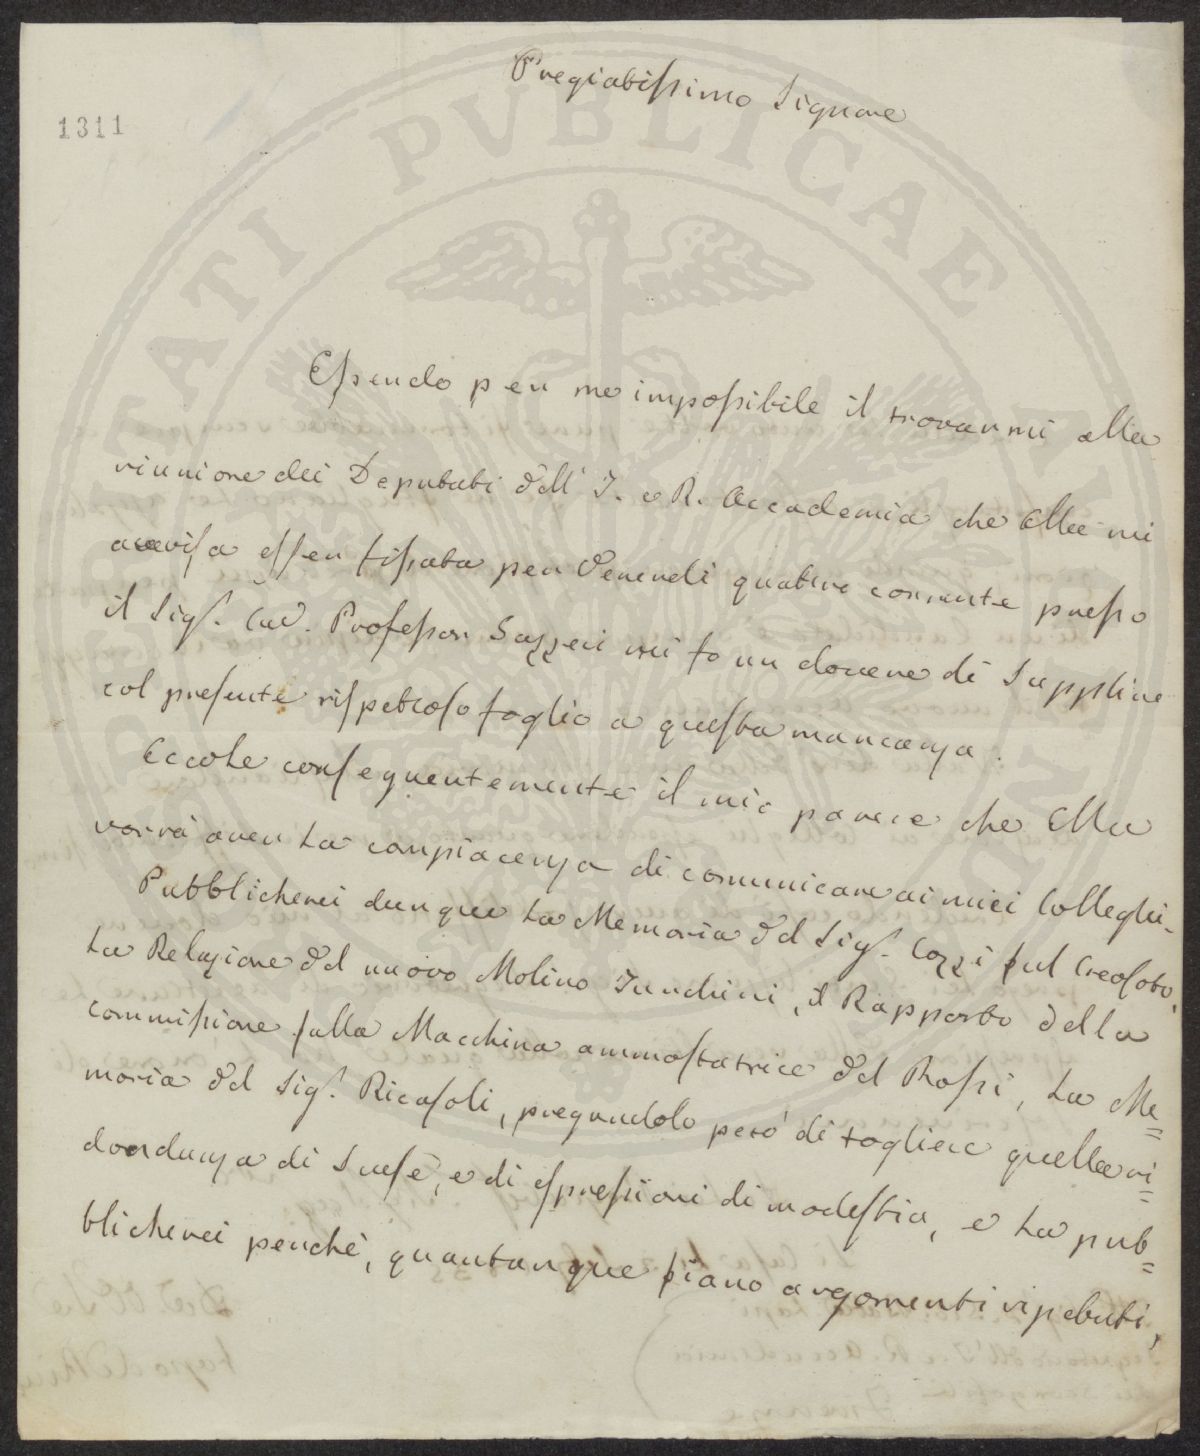 Pregiabissimo Signore
1311
Essendo per me impossibile il trovarmi alla
riunione dei Deputati dell' I. e R. Accademia che Ella mi
avvisa esser fissata per Venerdi quattro corrente presso
il Sigr. Cav. Professor Gazzeri mi fo un dovere di supplire
col presente rispettoso foglio a questa mancanza.
Eccole conseguentemente il mio parere che Ella
vorrà aver la compiacenza di comunicare ai miei Colleghi.
Pubblicherei dunque la Memoria del Sigr. Cozzi sul Creosoto,
la Relazione del nuovo Molino , il Rapporto della
commissione sulla Macchina ammostatrice del Rossi, la Me=
moria del Sigr. Ricasoli, pregandolo però di togliere quella ri=
dondanza di scuse, e di espressioni di modestia, e la pub=
blicherei perchè, quantunque siano argomenti ripetuti,
PVBLICAE